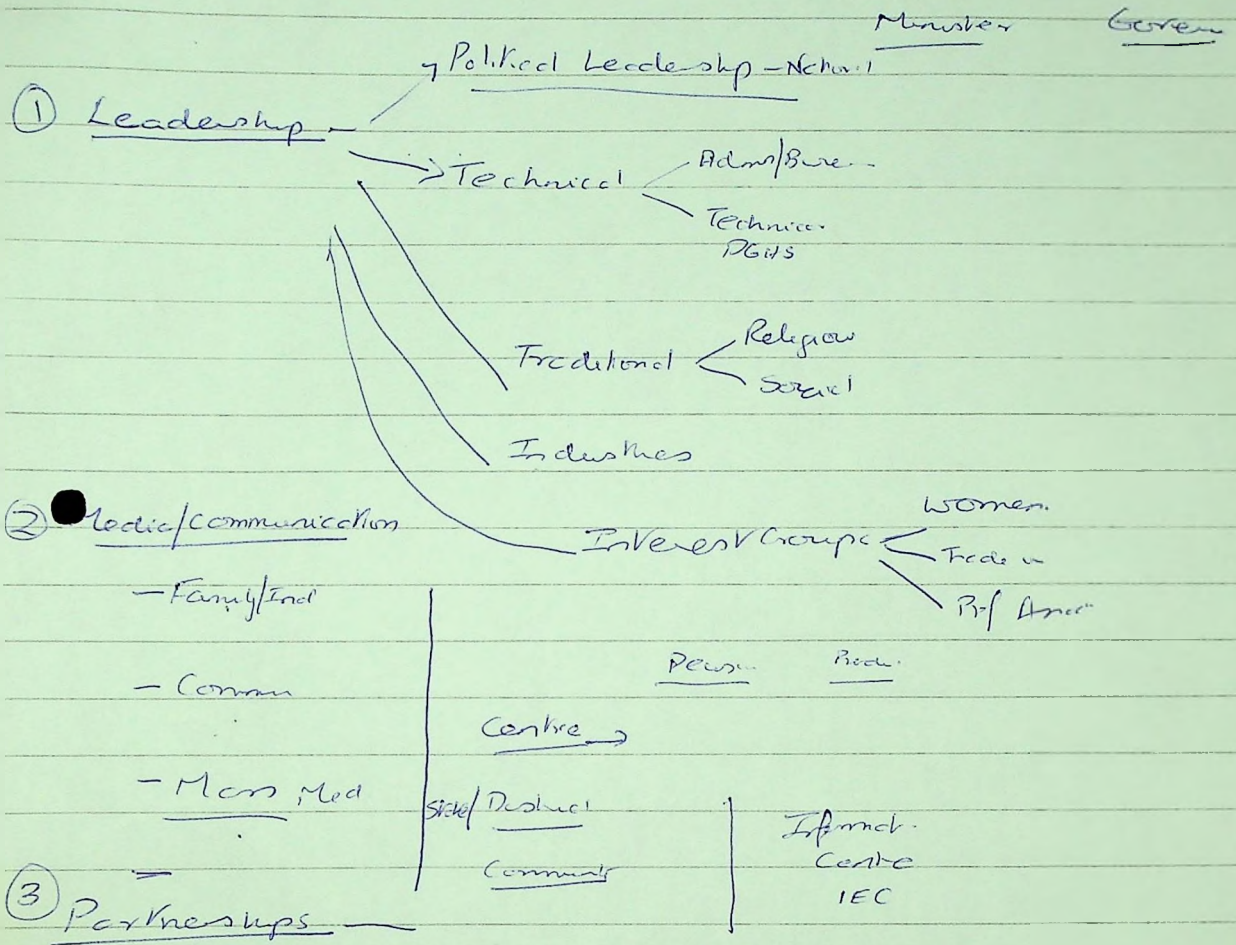 Minister Govern
→ Political Leadership - National
① Leadership -
→ Technical
Admn/Bure
Technical
DGHS
Traditional
Religious
Social
Industries
② Media/Communication
Interest Groups
Women
Trade u
Prof Assoc
- Family/Ind
- Commun
Centre →
- Mass Med
State/District
Communit
Informat.
Centre
IEC
③ Partnerships —